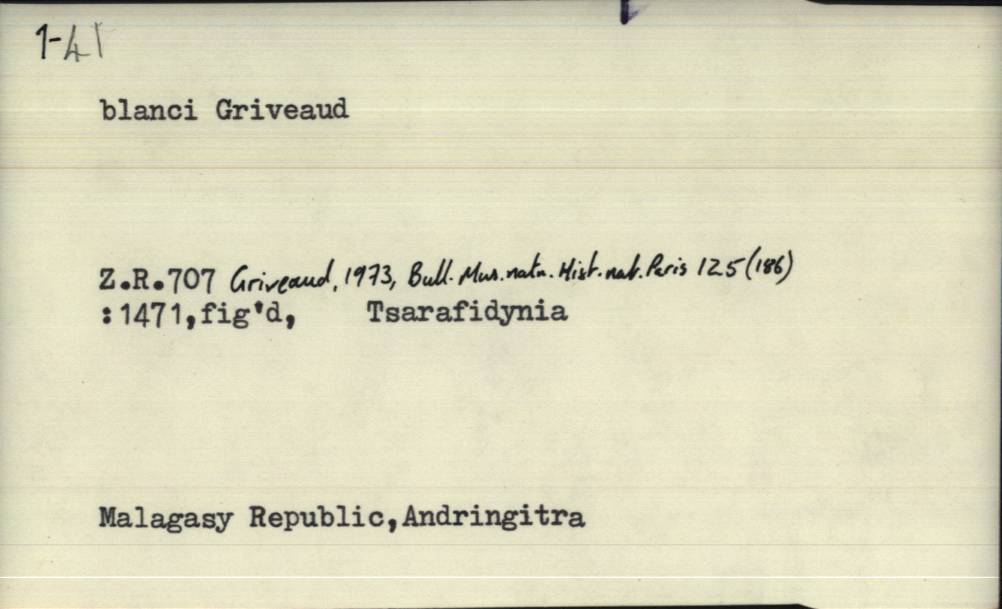 1-41
blanci Griveaud
Z.R.707 Griveaud, 1973, Bull. Mus. natn. Hist. nat. Paris 125 (186)
:1471,fig'd, Tsarafidynia
Malagasy Republic,Andringitra